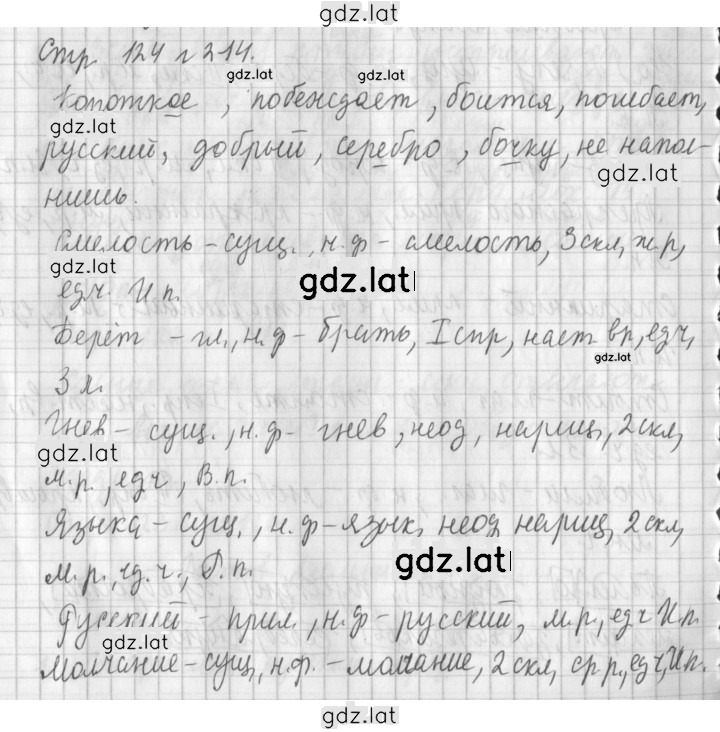 gdz.lat
Стр 124 г 214.
gdz.lat gdz.lat
Копоткое, побеждает, боится, погибает,
gdz.lat
русский, добрый, серебро, бочку, не напол-
gdz.lat
нишь.
Смелость – сущ., н.ф – смелость, 3 скл, ж.р,
gdz.lat
gdz.lat
ед.ч. И.п.
Берёт – гл., н.ф – брать, I спр, наст вр, ед.ч,
gdz.lat
3 л.
Гнев – сущ., н.ф – гнев, неод, нариц, 2 скл,
gdz.lat
м.р., ед.ч, В.п.
Языка – сущ., н.ф – язык, неод нариц, 2 скл,
gdz.lat
м.р. ед.ч., Р.п.
Русский – прил., н.ф – русский, м.р., ед.ч И.п.
gdz.lat
Молчание – сущ, н.ф. – молчание, 2 скл, ср.р., ед.ч, И.п.
gdz.lat